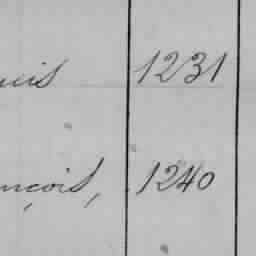 uis 1231
nçois, 1240